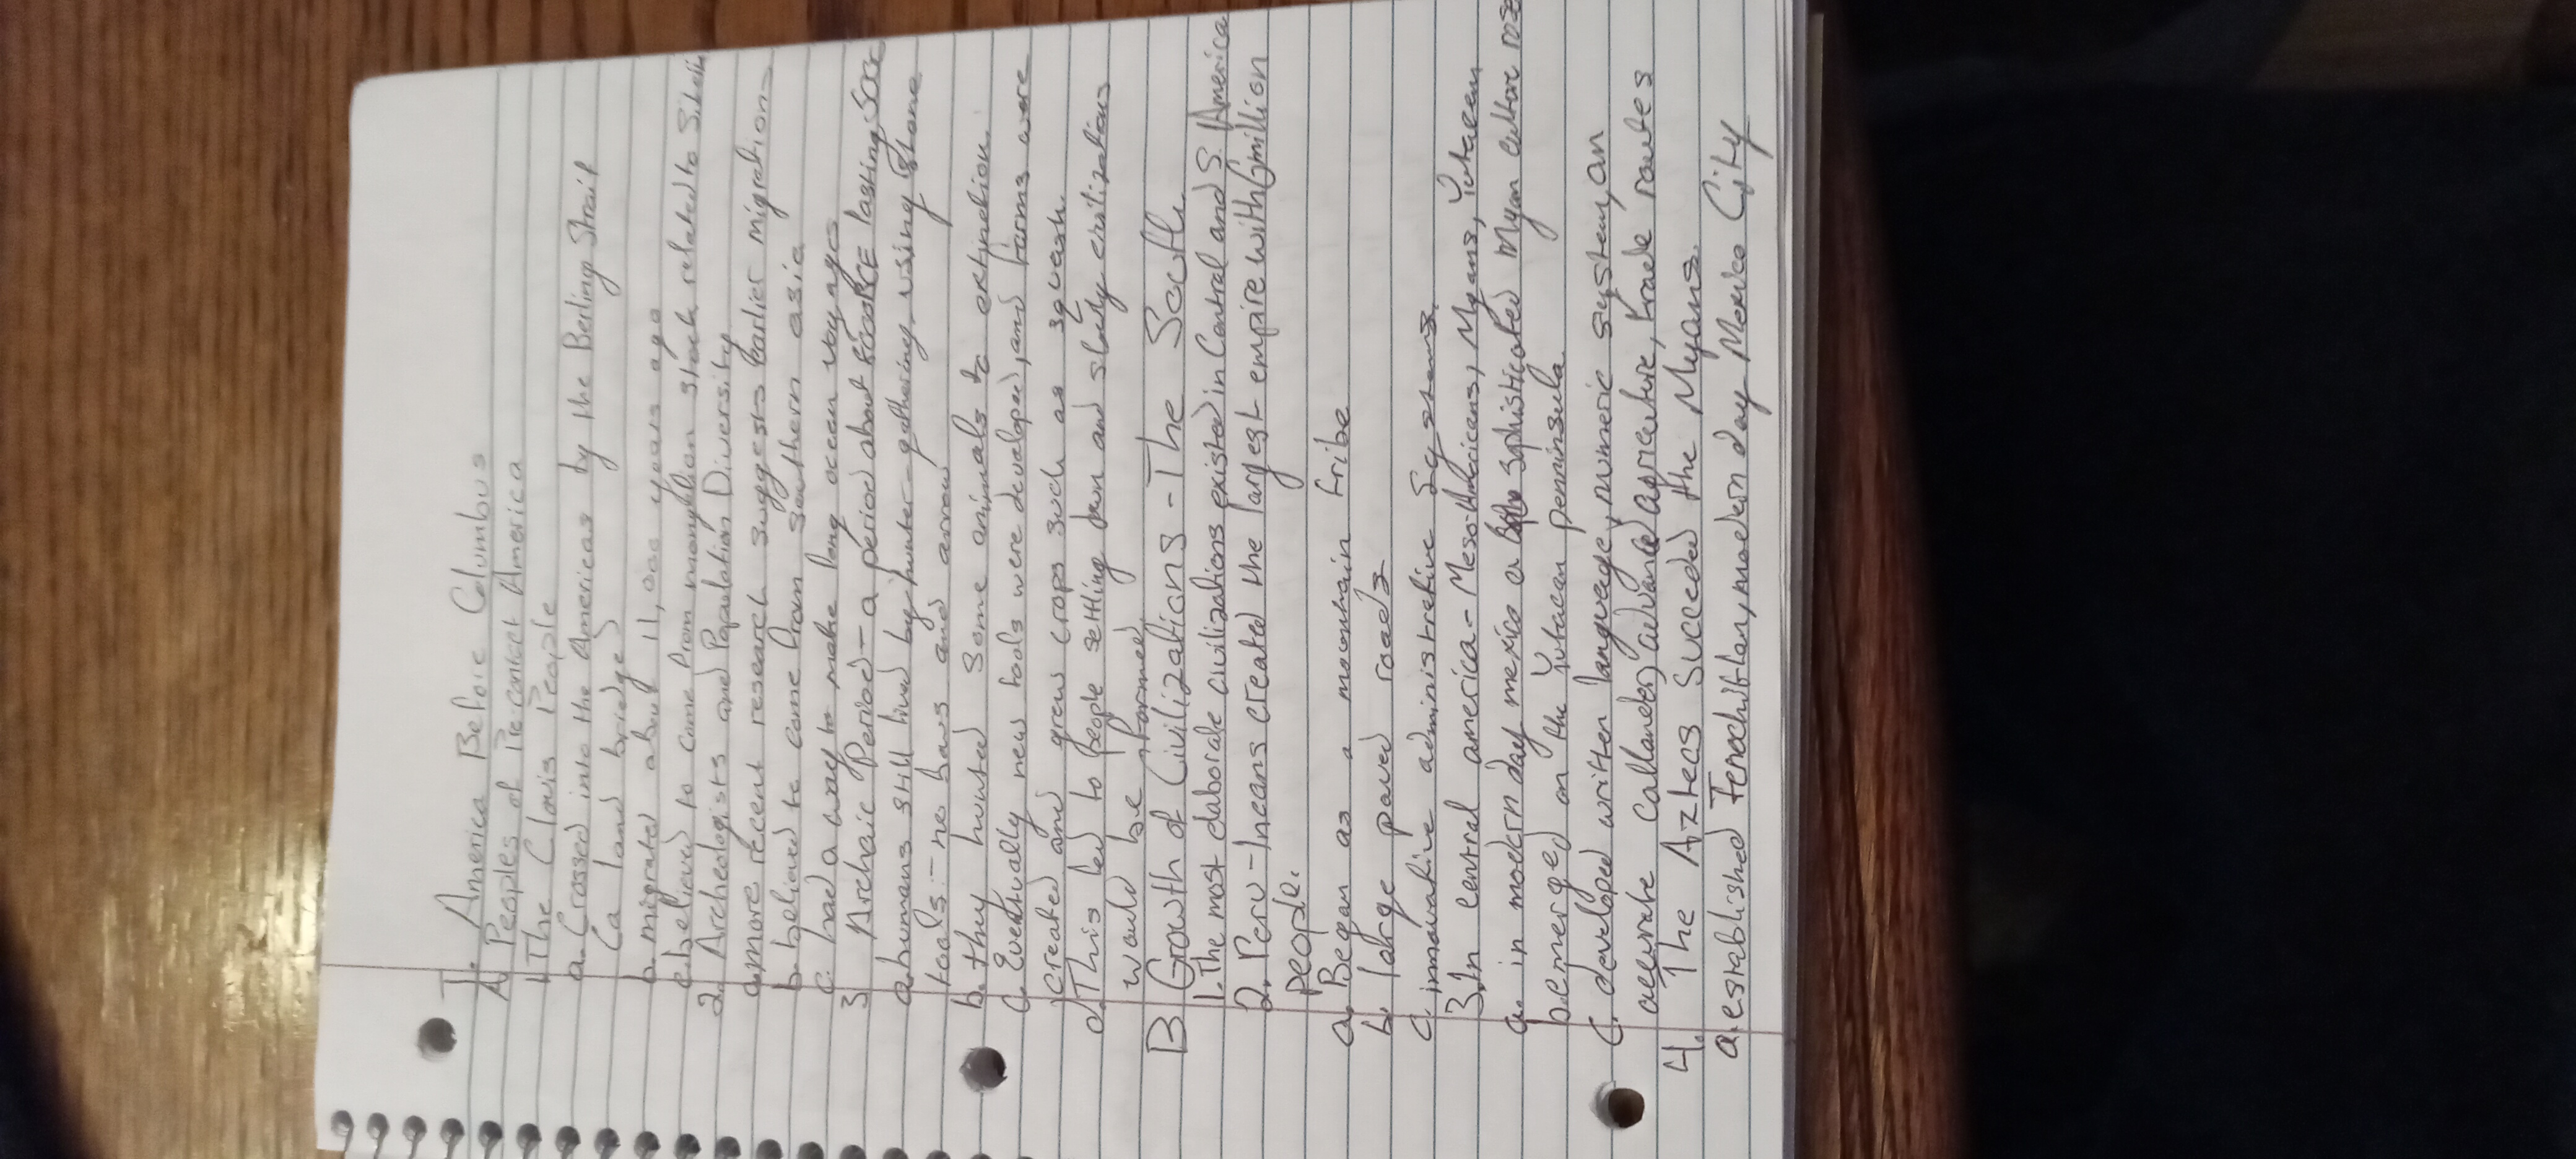 I. America Before Columbus
A. Peoples of Precontact America
1. The Clovis People
a. Crossed into the Americas by the Bering Strait
(a land bridge)
b. migrated about 11,000 years ago
c. believed to come from mongolian stock related to
2. Archeologists and Population Diversity
a. more recent research suggests earlier migration
b. believed to come from southern asia
c. had a way to make long ocean voyages
3 Archaic Period - a period about BCE lasting
a. humans still lived by hunter-gathering using stone
tools - no bows and arrow
b. they hunted some animals to extinction.
c. Eventually new tools were developed, and farms were
created and grew crops such as squash.
d. This led to people settling down and slowly civilizations
would be formed
B Growth of Civilizations - The South
1. The most elaborate civilizations existed in Central and S. America
2. Peru - Incans created the largest empire with 6 million
people.
a. Began as a mountain tribe
b. large paved roads
c. innovative administrative systems.
3. In central america - Meso-Americans, Myans, Yutacen
a. in modern day mexico a sophisticated Myan culture rose
b. emerged on the Yutacan penninsula.
C. developed written language, numeric system, an
accurate callander, advanced agriculture, trade routes
4. The Aztecs Succeded the Myans.
a. established Tenochitlan, modern day Mexico City